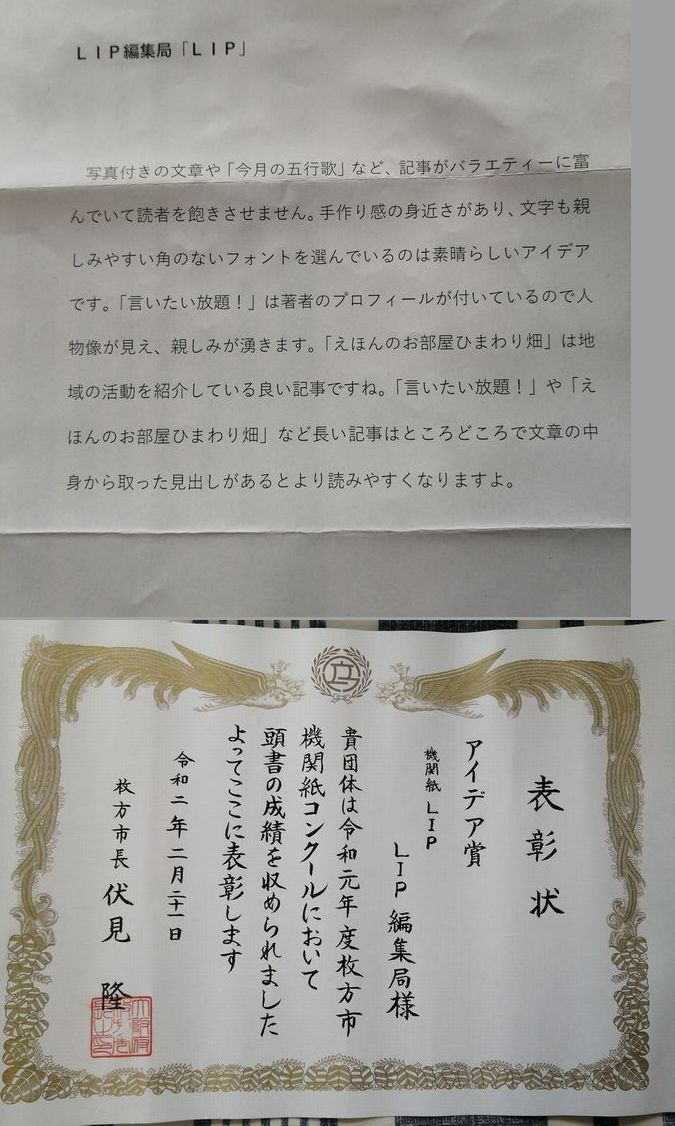 ＬＩＰ編集局「ＬＩＰ」
写真付きの文章や「今月の五行歌」など、記事がバラエティーに富
んでいて読者を飽きさせません。手作り感の身近さがあり、文字も親
しみやすい角のないフォントを選んでいるのは素晴らしいアイデア
です。「言いたい放題！」は著者のプロフィールが付いているので人
物像が見え、親しみが湧きます。「えほんのお部屋ひまわり畑」は地
域の活動を紹介している良い記事ですね。「言いたい放題！」や「え
ほんのお部屋ひまわり畑」など長い記事はところどころで文章の中
身から取った見出しがあるとより読みやすくなりますよ。
表彰状
アイデア賞
機関紙 ＬＩＰ
ＬＩＰ編集局様
貴団体は令和元年度枚方市
機関紙コンクールにおいて
頭書の成績を収められました
よってここに表彰します
令和二年二月二十一日
枚方市長 伏見 隆